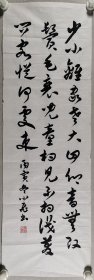 少小離家老大回鄉音無改
鬢毛衰児童相見不相識
笑问客從何處来丙寅冬